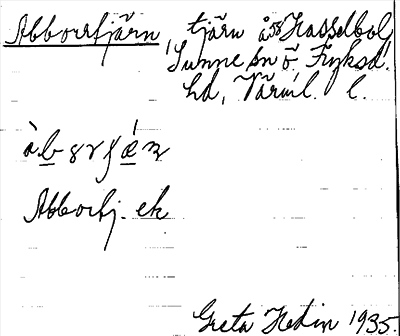 Abborrtjärn, tjärn å Hasselbol,
Sunne sn ö, Fryksd.
hd, Värml. l.
Abborrtj. ek
Greta Hedin 1935.